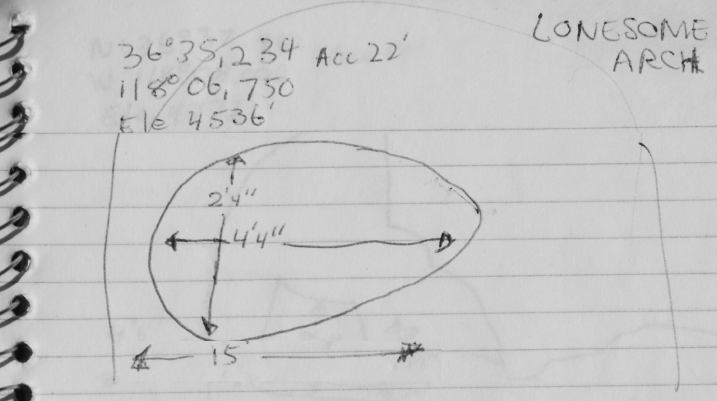 LONESOME
ARCH
36°35,234 Acc 22'
118° 06, 750
Ele 4536'
2'4"
4'4"
15